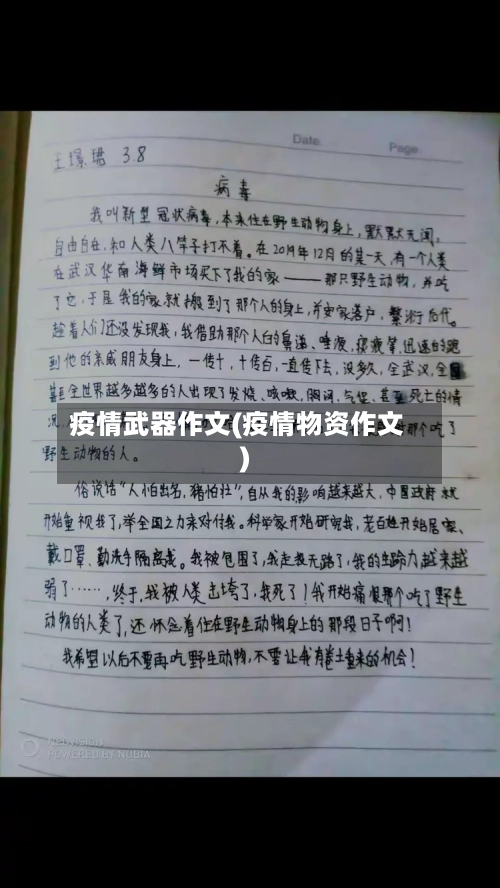 Date.
Page.
王璟珺 3.8
病毒
我叫新型冠状病毒，本来住在野生动物身上，默默无闻，
自由自在，和人类八竿子打不着。在2019年12月的某一天，有一个人类
在武汉华南海鲜市场买下了我的家——那只野生动物，并吃
了它，于是我的家就搬到了那个人的身上，并安家落户，繁衍后代。
趁着人们还没发现我，我借助那个人的鼻涕、唾液、 等，迅速的跑
到他的亲戚朋友身上，一传十，十传百，一直传下去，没多久，全武汉，全国
甚至全世界越多越多的人出现了发烧、咳嗽，胸闷，气促，甚至死亡的情
况，
疫情武器作文(疫情物资作文
)
那个吃了
野生动物的人。
俗说话“人怕出名，猪怕壮”，自从我的影响越来越大，中国政府就
开始重视我了，举全国之力来对付我。科学家开始研究我，老百姓开始居家、
戴口罩、勤洗手隔离我。我被包围了，我走投无路了，我的生命力越来越
弱了……，终于，我被人类击垮了，我死了！我开始痛恨那个吃了野生
动物的人类了，还怀念着住在野生动物身上的那段日子啊！
我希望以后不要再吃野生动物，不要让我有卷土重来的机会！
POWERED BY NUBIA